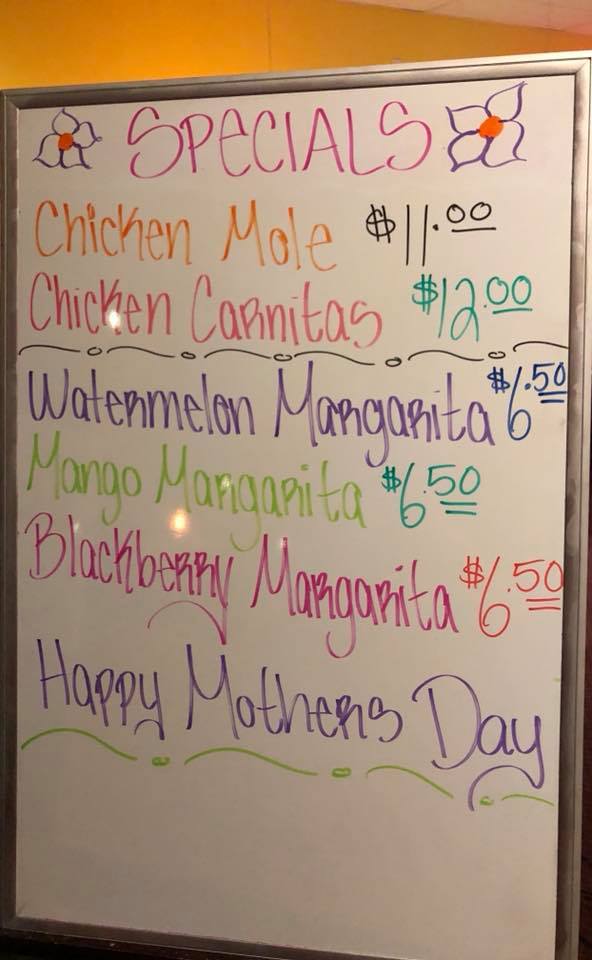 SPECIALS
Chicken Mole $11.00
Chicken Carnitas $12.00
Watermelon Margarita $6.50
Mango Margarita $6.50
Blackberry Margarita $6.50
Happy Mothers Day